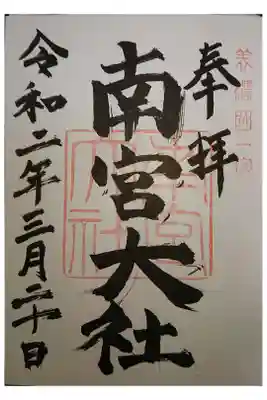 奉拝
美濃國一宮
南宮大社
南宮大社
令和二年三月二十日